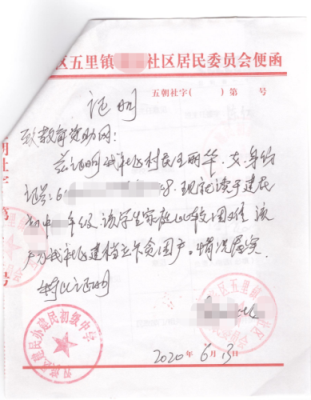 区五里镇
社区居民委员会便函
五朝社字( )第 号
证明
致教育资助网:
兹证明我社区村民王丽华,女,身份
证号:6 8.现就读于建民
初中 年级,该学生家庭比较困难,该
户为我社区建档立卡贫困户。情况属实.
特此证明
建民办建民初级中学
五里镇
2020 6月13日
朝社字
号